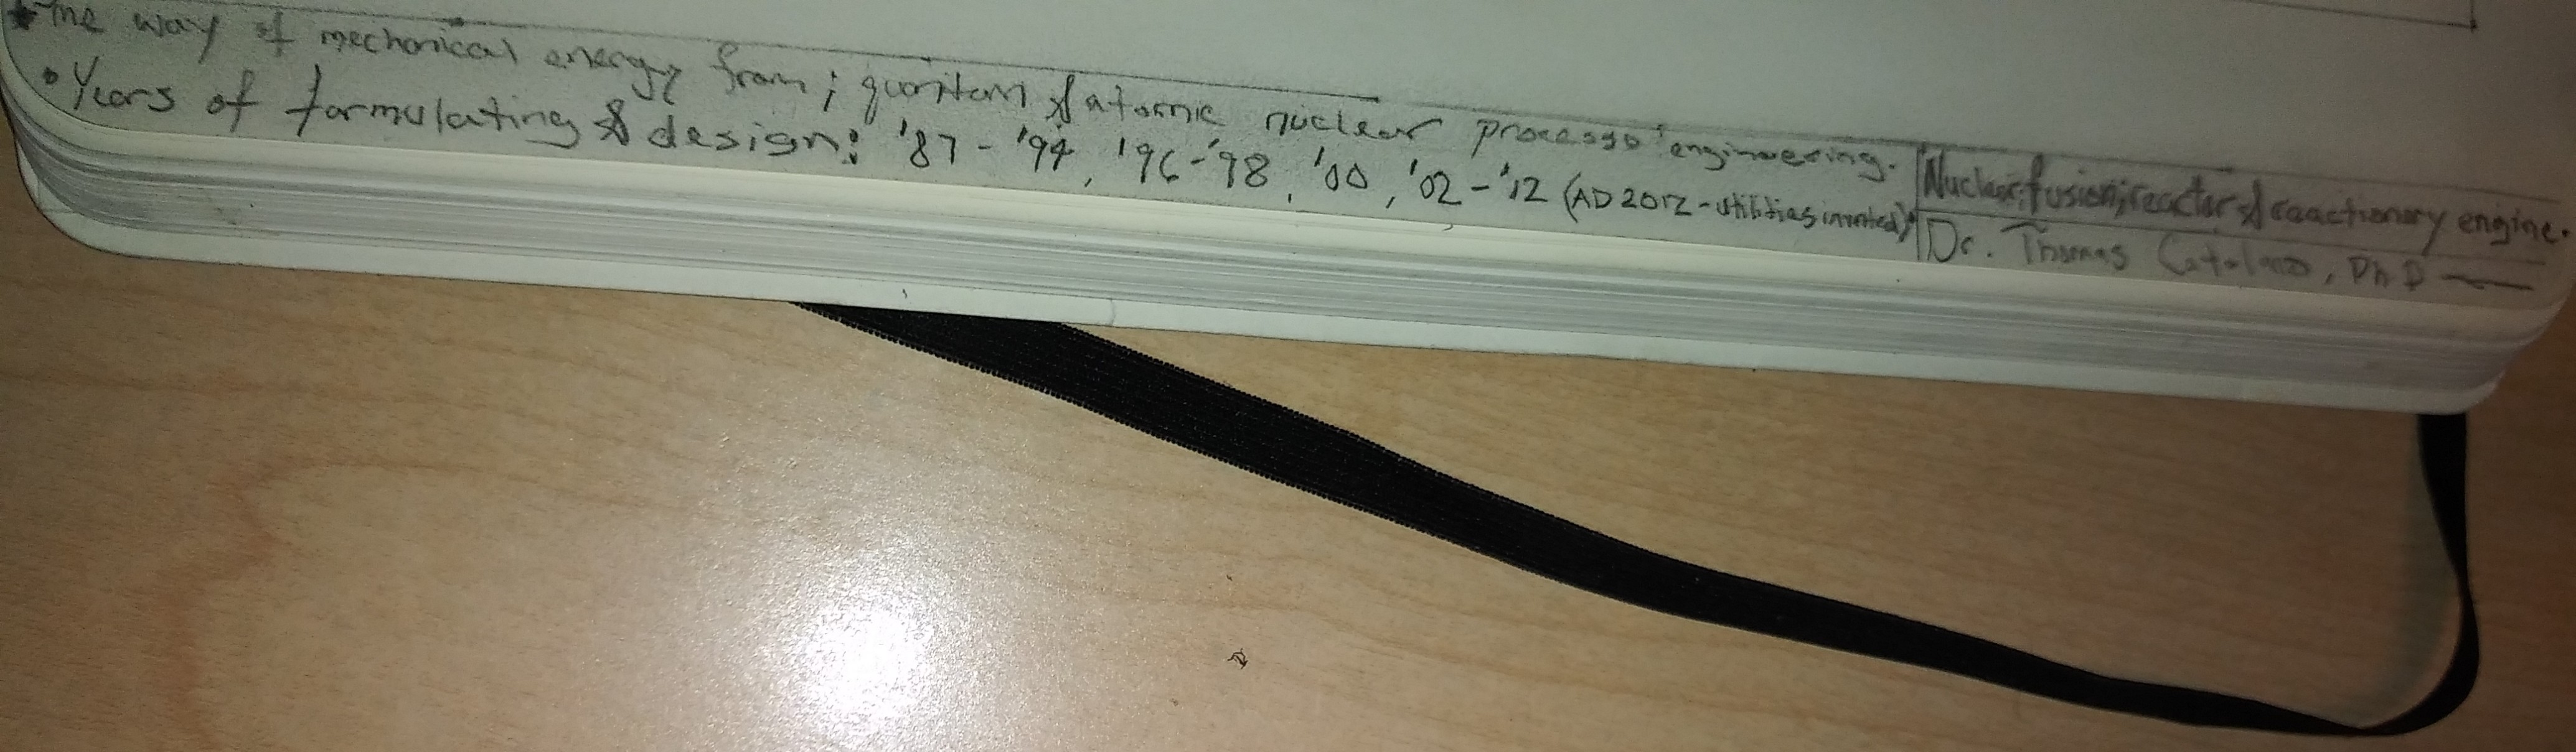 The way of mechanical energy from; quantum & atomic nuclear process' engineering.
• Years of formulating & design: '87 - '94, '96-'98, '00, '02-'12 (AD 2012 - utilities invented)
Nuclear; fusion; reactor & reactionary engine.
Dr. Thomas Catalano, Ph D